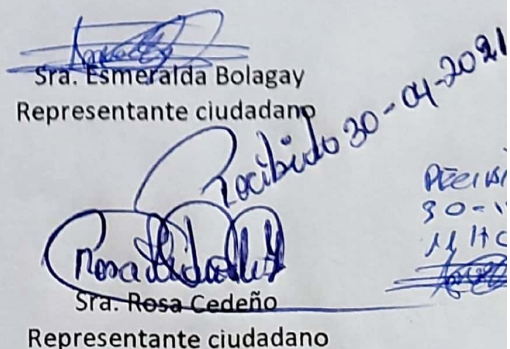 Sra. Esmeralda Bolagay
Representante ciudadano
Recibido 30-04-2021
Sra. Rosa Cedeño
Representante ciudadano